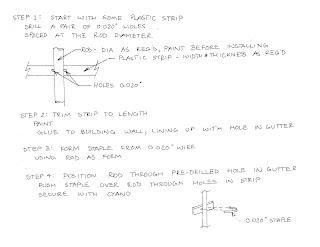 STEP 1: START WITH SOME PLASTIC STRIP
DRILL A PAIR OF 0.020" HOLES
SPACED AT THE ROD DIAMETER.
ROD - DIA AS REQ'D, PAINT BEFORE INSTALLING
PLASTIC STRIP - WIDTH & THICKNESS AS REQ'D
HOLES 0.020"
STEP 2: TRIM STRIP TO LENGTH
PAINT
GLUE TO BUILDING WALL, LINING UP WITH HOLE IN GUTTER
STEP 3: FORM STAPLE FROM 0.020" WIRE
USING ROD AS FORM
STEP 4: POSITION ROD THROUGH PRE-DRILLED HOLE IN GUTTER
PUSH STAPLE OVER ROD THROUGH HOLES IN STRIP
SECURE WITH CYANO
0.020" STAPLE